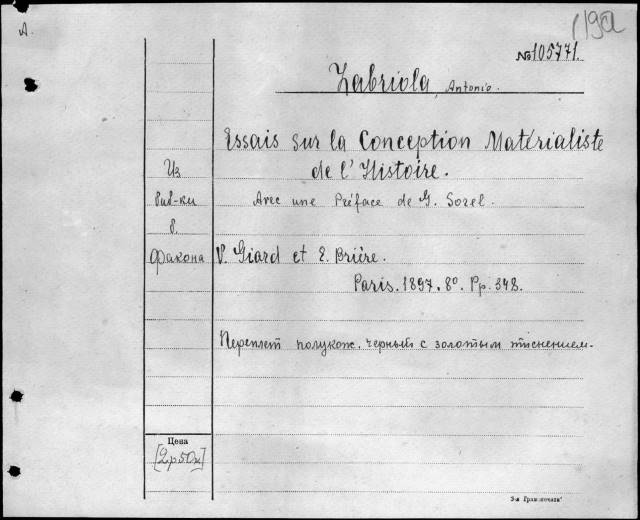 A.
119а
№105771.
Labriola, Antonio.
Essais sur la Conception Matérialiste
de l'Histoire.
Avec une Préface de G. Sorel.
V. Giard et E. Brière.
Paris. 1897. 8º. Pp. 348.
Переплет полукож. черный с золотым тиснением.
Из
биб-ки
б.
Факона
Цена
[2р50к]
3-я Гран.-печати"